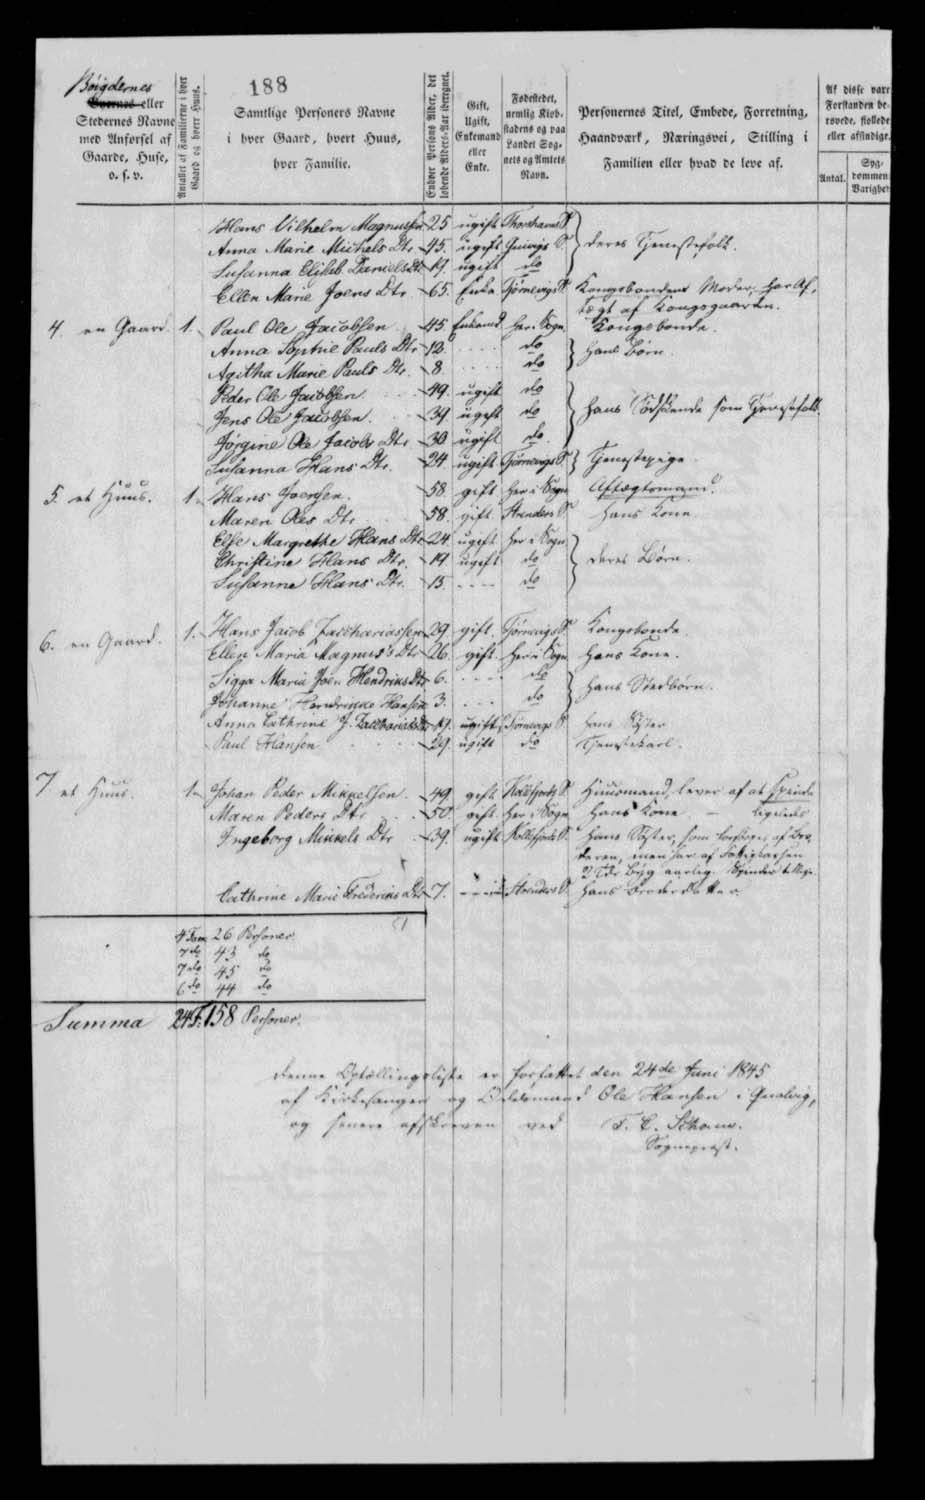 188
Bøigdernes
Byernes eller
Stedernes Navne
med Anførsel af
Gaarde, Huse,
o. s. v.
Antallet af Familierne i hver
Gaard og hvert Huus.
Samtlige Personers Navne
i hver Gaard, hvert Huus,
hver Familie.
Enhver Persons Alder, det
løbende Alders-Aar iberegnet.
Gift,
Ugift,
Enkemand
eller
Enke.
Fødestedet,
nemlig Kiøb-
stadens og paa
Landet Sog-
nets og Amtets
Navn.
Personernes Titel, Embede, Forretning,
Haandværk, Næringsvei, Stilling i
Familien eller hvad de leve af.
Af disse vare
Forstanden be-
røvede, fiollede
eller afsindige.
Antal.
Syg-
dommens
Varighed
Hans Vilhelm Magnussen 25 ugift Thorshavns S.
Anna Marie Michels Dtr. 45. ugift S. deres Tjenestefolk.
Susanna Elisab. Daniels Dtr 19. ugift do
Ellen Marie Joens Dtr. 65. Enke Tjørnevigs S. Kongsbondens Moder, har Af-
tægt af Kongsgaarden.
4. en Gaard. 1. Paul Ole Jacobsen 45. Enkemd. her i Sogn Kongsbonde.
Anna Sophie Pauls Dtr 12. do hans Børn.
Agitha Marie Pauls Dtr. 8. do
Peder Ole Jacobsen 49. ugift do
Jens Ole Jacobsen. 39. ugift do hans Sødskende som Tjenestefolk
Jørgine Ole Jacobs Dtr 30 ugift do.
Susanna Hans Dtr. 24. ugift Tjørnevigs S. Tjenestepige.
5. et Huus. 1. Hans Joensen. 58. gift her i Sogn Aftægtsmand.
Maren Oles Dtr 58. gift Strenders S. hans Kone.
Else Margrethe Hans Dtr 24 ugift her i Sogn
Christine Hans Dtr. 19. ugift do deres Børn.
Susanne Hans Dtr. 15. do
6. en Gaard. 1. Hans Jacob Zachariassen 29. gift Tjørnevigs S. Kongsbonde.
Ellen Maria Magnus's Dtr 26. gift her i Sogn hans Kone.
Sigga Maria Joen Hendriks Dtr 6. do hans Stedbørn.
Johanne Hendrikke Hansen 3. do
Anna Cathrine J. Zacharias Dtr 19. ugift Tjørnevigs S. hans Søster
Paul Hansen 29. ugift do Tjenestekarl.
7 et Huus. 1. Johan Peder Mikkelsen. 49. gift Kollefjords S. Huusmand, lever af at spinde
Maren Peders Dtr. 50. gift her i Sogn hans Kone — ligeledes
Ingeborg Mikkels Dtr 39. ugift Kollefjords S. hans Søster, som forsørges af Bro-
deren, men har af Fattigkassen
2 Tdr Byg aarlig. Spinder tillige.
Cathrine Marie Frederiks Dtr 7. Strenders S. hans Broderdatter.
4 Fam. 26 Personer.
7 do 43 do
7 do 45 do
6 do 44 do
Summa 24 F. 158 Personer.
denne Optællingsliste er forfattet den 24de Juni 1845
af Kirkesanger og Ole Hansen i Qvalvig,
og senere afskreven ved
Sognepræst.